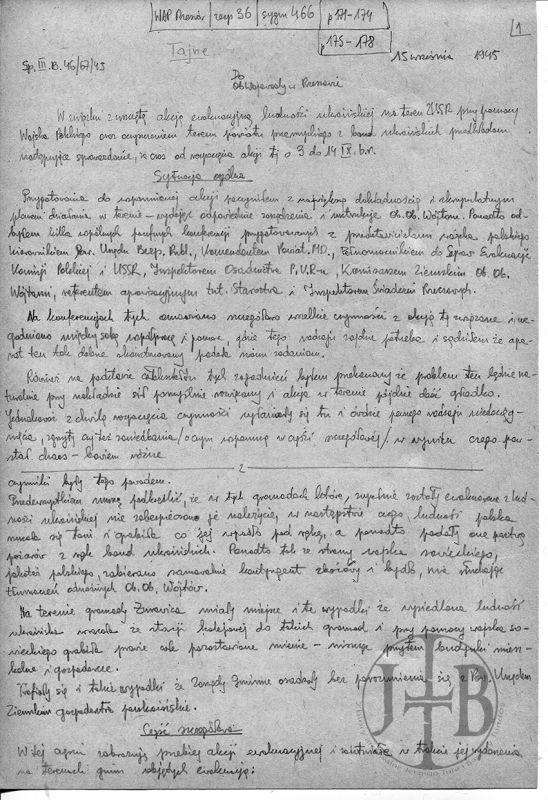 WAP Rzeszów zesp 36 sygn 466 p 171-174
p 175-178
1
Tajne
Sp. III. B. 46/67/45
15 września 1945
Do
Ob Wojewody w Rzeszowie
W związku z wszczętą akcją ewakuacyjną ludności ukraińskiej na teren ZSSR przy pomocy
Wojska Polskiego oraz oczyszczeniem terenu powiatu przemyskiego z band ukraińskich przedkładam
następujące sprawozdanie, za czas od rozpoczęcia akcji tj o 3 do 14 IX. b.r.
Sytuacja ogólna
Przygotowania do wspomnianej akcji poczyniłem z największą dokładnością i skrupulatnym
planem działania w terenie – wydając odpowiednie zarządzenia i instrukcje Ob. Ob. Wójtom. Ponadto od-
byłem kilka wspólnych poufnych konferencji przygotowawczych z przedstawicielami wojska polskiego
Kierownikiem Pow. Urzędu Bezp. Publ., Komendantem Powiat. M.O., Pełnomocnikiem do Spraw Ewakuacji
Komisji Polskiej i USSR, Inspektorem Osadnictwa P.U.R-u, Komisarzem Ziemskim Ob. Ob.
Wójtami, referentem aprowizacyjnym tut. Starostwa i Inspektorem Świadczeń Rzeczowych.
Na konferencjach tych omawiano szczegółowo wszelkie czynności z akcją tą związane i uz-
godniono między sobą współpracę i pomoc, gdzie tego rodzaju zajdzie potrzeba i sądziłem że apa-
rat ten tak dobrze skonstruowany podoła swoim zadaniom.
Również na podstawie całokształtu tych zagadnień byłem przekonany że problem ten będzie na-
turalnie przy nakładzie sił pomyślnie rozwiązany i akcja w terenie pójdzie dość gładko.
Jednakowoż z chwilą rozpoczęcia czynności wyłaniały się tu i ówdzie pewnego rodzaju niedociąg-
nięcia, zgrzyty czy też zaniedbania /o czym wspomnę w części szczegółowej/ w wyniku czego pow-
stał chaos – bowiem różne
2
czynniki były tego powodem.
Przedewszystkiem muszę podkreślić, że w tych gromadach które, zupełnie zostały ewakuowane z lud-
ności ukraińskiej nie zabezpieczono je należycie, w następstwie czego ludność polska
rzuciła się tam i grabiła co jej wpadło pod rękę, a ponadto padały one pastwą
pożarów z rąk band ukraińskich. Ponadto tak ze strony wojska sowieckiego,
jakoteż polskiego, zabierano samowolnie kontyngent zbożowy i bydło, nie słuchając
tłumaczeń odnośnych Ob. Ob. Wójtów.
Na terenie gromady Żurawica miały miejsce i te wypadki że wysiedlona ludność
ukraińska wracała ze stacji kolejowej do takich gromad i przy pomocy wojska so-
wieckiego grabiła prawie całe pozostawione mienie – niszcząc przytem budynki miesz-
kalne i gospodarcze.
Trafiały się i takie wypadki że Zarządy Gminne osadzały bez porozumienia się z Pow. Urzędem
Ziemskim gospodarstwa poukraińskie.
Część szczegółowa
W tej części zobrazuję przebieg akcji ewakuacyjnej i zaistniałe w trakcie jej wykonania
na terenach gmin objętych ewakuacją:
JTB